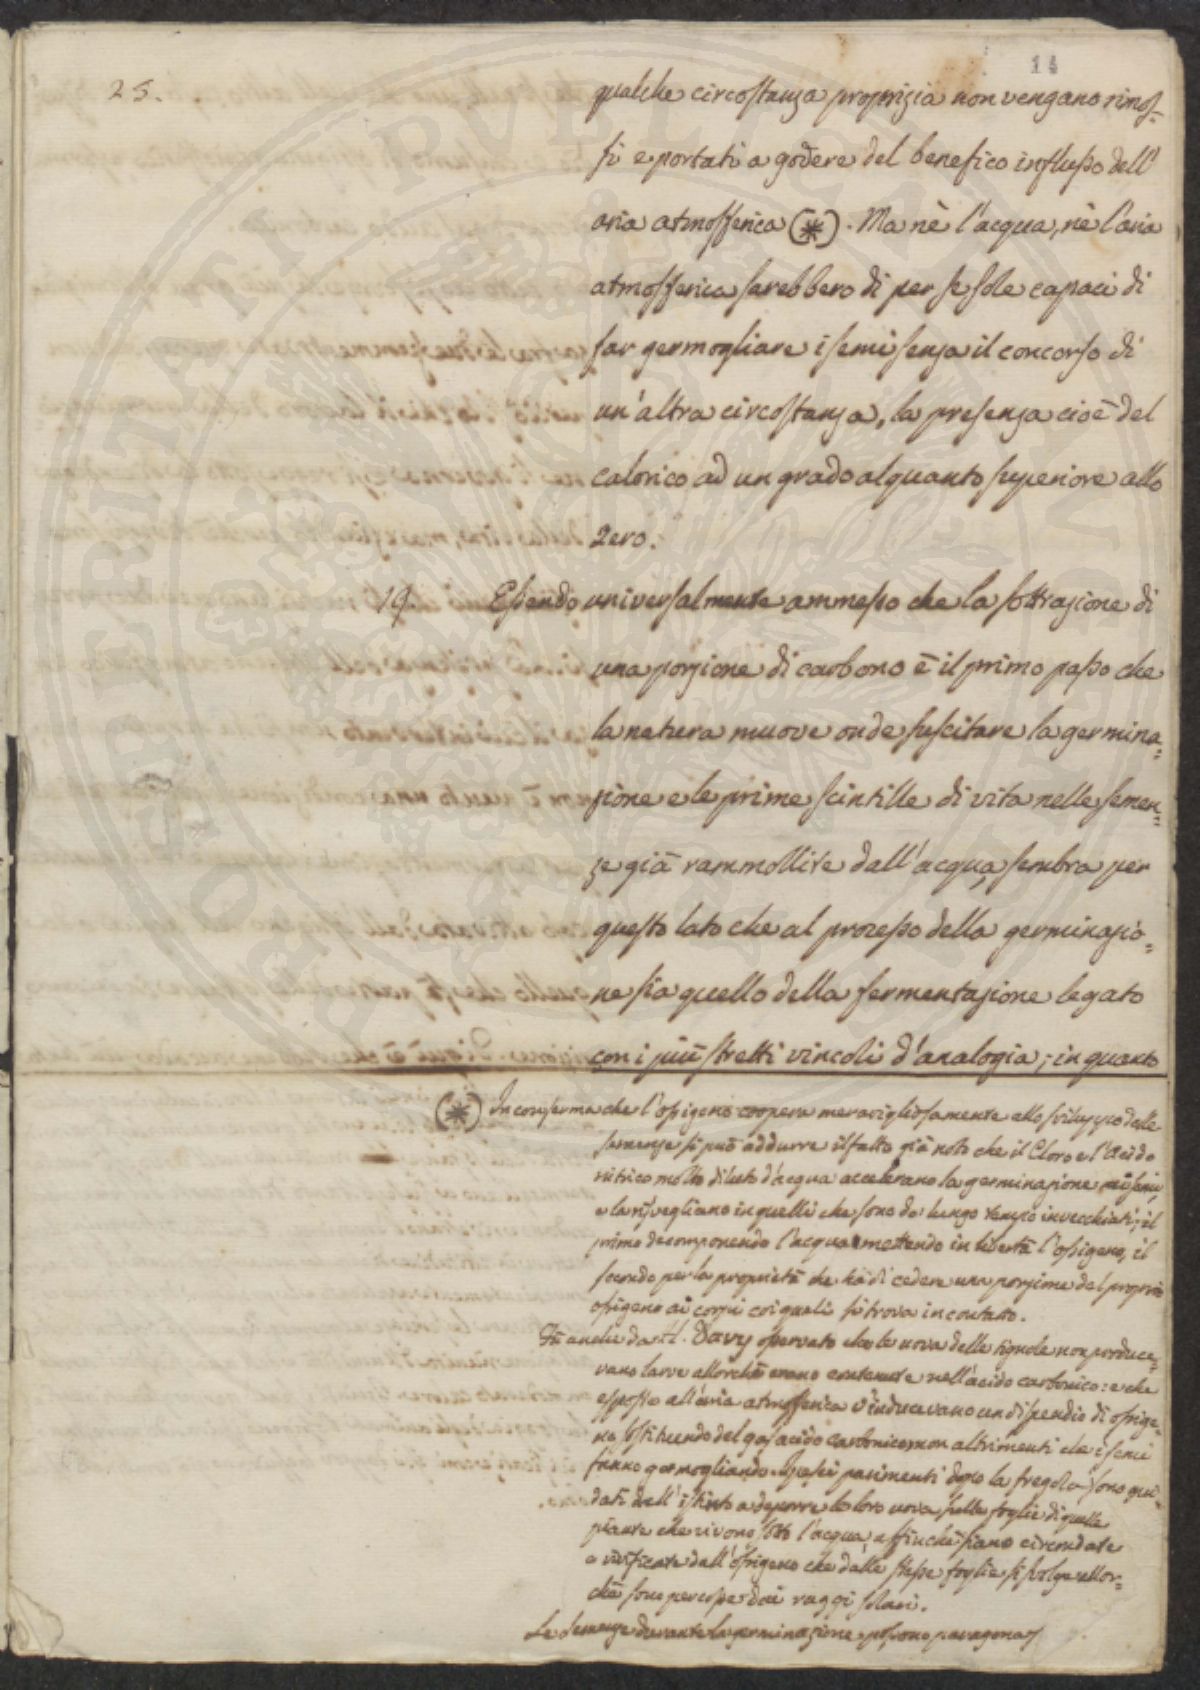 14
25.
qualche circostanza propizia non vengano rimos-
si e portati a godere del benefico influsso dell'
aria atmosferica (*). Ma nè l'acqua, nè l'aria
atmosferica sarebbero di per se sole capaci di
far germogliare i semi senza il concorso di
un'altra circostanza, la presenza cioè del
calorico ad un grado alquanto superiore allo
zero.
19. Essendo universalmente ammesso che la sottrazione di
una porzione di carbono è il primo passo che
la natura muove onde suscitare la germina=
zione e le prime scintille di vita nelle semen=
ze già rammollite dall'acqua, sembra per
questo lato che al processo della germinazio=
ne sia quello della fermentazione legato
con i più stretti vincoli d'analogia; in quanto
(*) In conferma che l'ossigeno coopera meravigliosamente allo sviluppo delle
semenze si può addurre il fatto già noto che il Cloro e l'Acido
nitrico molto diluto d'acqua accelerano la germinazione
e la risvegliano in quelli che sono da lungo tempo invecchiati; il
primo decomponendo l'acqua e mettendo in libertà l'ossigeno, il
secondo per la proprietà che ha di cedere una porzione del proprio
ossigeno ai corpi coi quali si trova in contatto.
Fù anche da H. Davy osservato che le uova delle tignole non produce=
vano larve allorchè erano contenute nell'acido carbonico: e che
esposte all'aria atmosferica v'inducevano un dispendio di ossige=
no sostituendo del gas acido carbonico non altrimenti che i semi
fanno germogliando. I pesci parimenti dopo la fregola sono gui=
dati dall'istinto a deporre le loro uova sulle foglie di quelle
piante che vivono sotto l'acqua, affinchè siano circondate
e vivificate dall'ossigeno che dalle stesse foglie si svolge allor=
chè sono percosse dai raggi solari.
Le semenze durante la germinazione possono paragonar